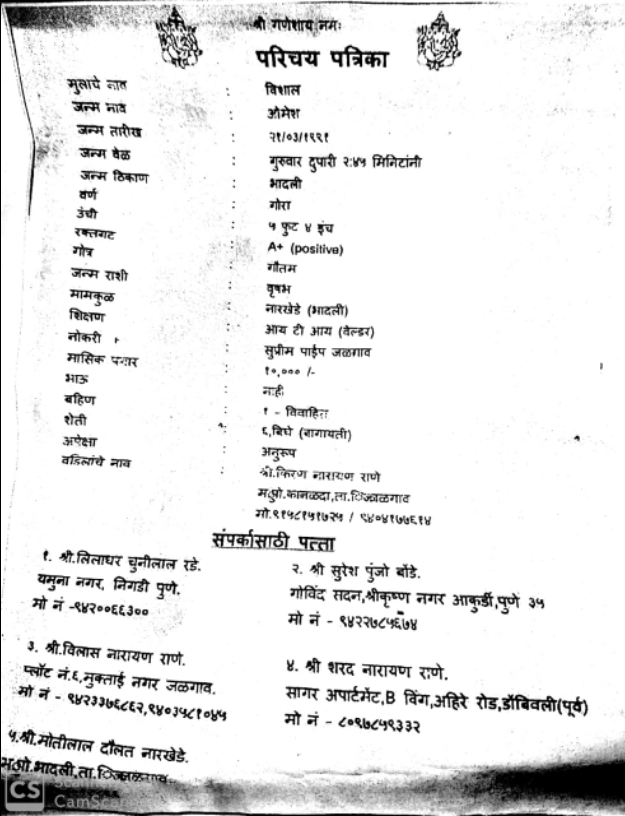 श्री गणेशाय नमः
परिचय पत्रिका
मुलाचे नाव : विशाल
जन्म नाव : ओमेश
जन्म तारीख : २१/०३/१९९१
जन्म वेळ : गुरुवार दुपारी २:४५ मिनिटांनी
जन्म ठिकाण : भादली
वर्ण : गोरा
उंची : ५ फुट ४ इंच
रक्तगट : A+ (positive)
गोत्र : गौतम
जन्म राशी : वृषभ
मामकुळ : नारखेडे (भादली)
शिक्षण : आय टी आय (वेल्डर)
नोकरी : सुप्रीम पाईप जळगाव
मासिक पगार : १०,००० /-
भाऊ : नाही
बहिण : १ - विवाहित
शेती : ६,बिघे (बागायती)
अपेक्षा : अनुरूप
वडिलांचे नाव : श्री.किरण नारायण राणे
मु.पो.कानळदा,ता.जि.जळगाव
मो.९१५८१५१७२५ / ९४०४१७७६१४
संपर्कासाठी पत्ता
१. श्री.लिलाधर चुनीलाल रडे.
यमुना नगर, निगडी पुणे.
मो नं -९४२००६६३००
२. श्री सुरेश पुंजो बोंडे.
गोविंद सदन,श्रीकृष्ण नगर आकुर्डी,पुणे ३५
मो नं - ९४२२७८५६७४
३. श्री.विलास नारायण राणे.
प्लॉट नं.६,मुक्ताई नगर जळगाव.
मो नं - ९४२३३७६८६२,९४०३५८१०४५
४. श्री शरद नारायण राणे.
सागर अपार्टमेंट,B विंग,अहिरे रोड,डोंबिवली(पूर्व)
मो नं - ८०९७८५९३३२
५.श्री.मोतीलाल दौलत नारखेडे.
मु.पो.भादली,ता.जि.जळगाव
CS
CamScan